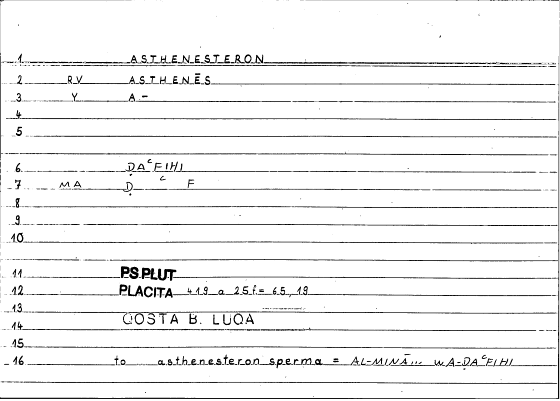 1 ASTHENESTERON
2 RV ASTHENĒS
3 Y A-
4
5
6 ḌAᶜFIHI
7 MA Ḍ ᶜ F
8
9
10
11 PS.PLUT
12 PLACITA 419 a 25f = 65,19
13
14 QOSTA B. LUQA
15
16 to asthenesteron sperma = AL-MINĀ... WA-ḌAᶜFIHI